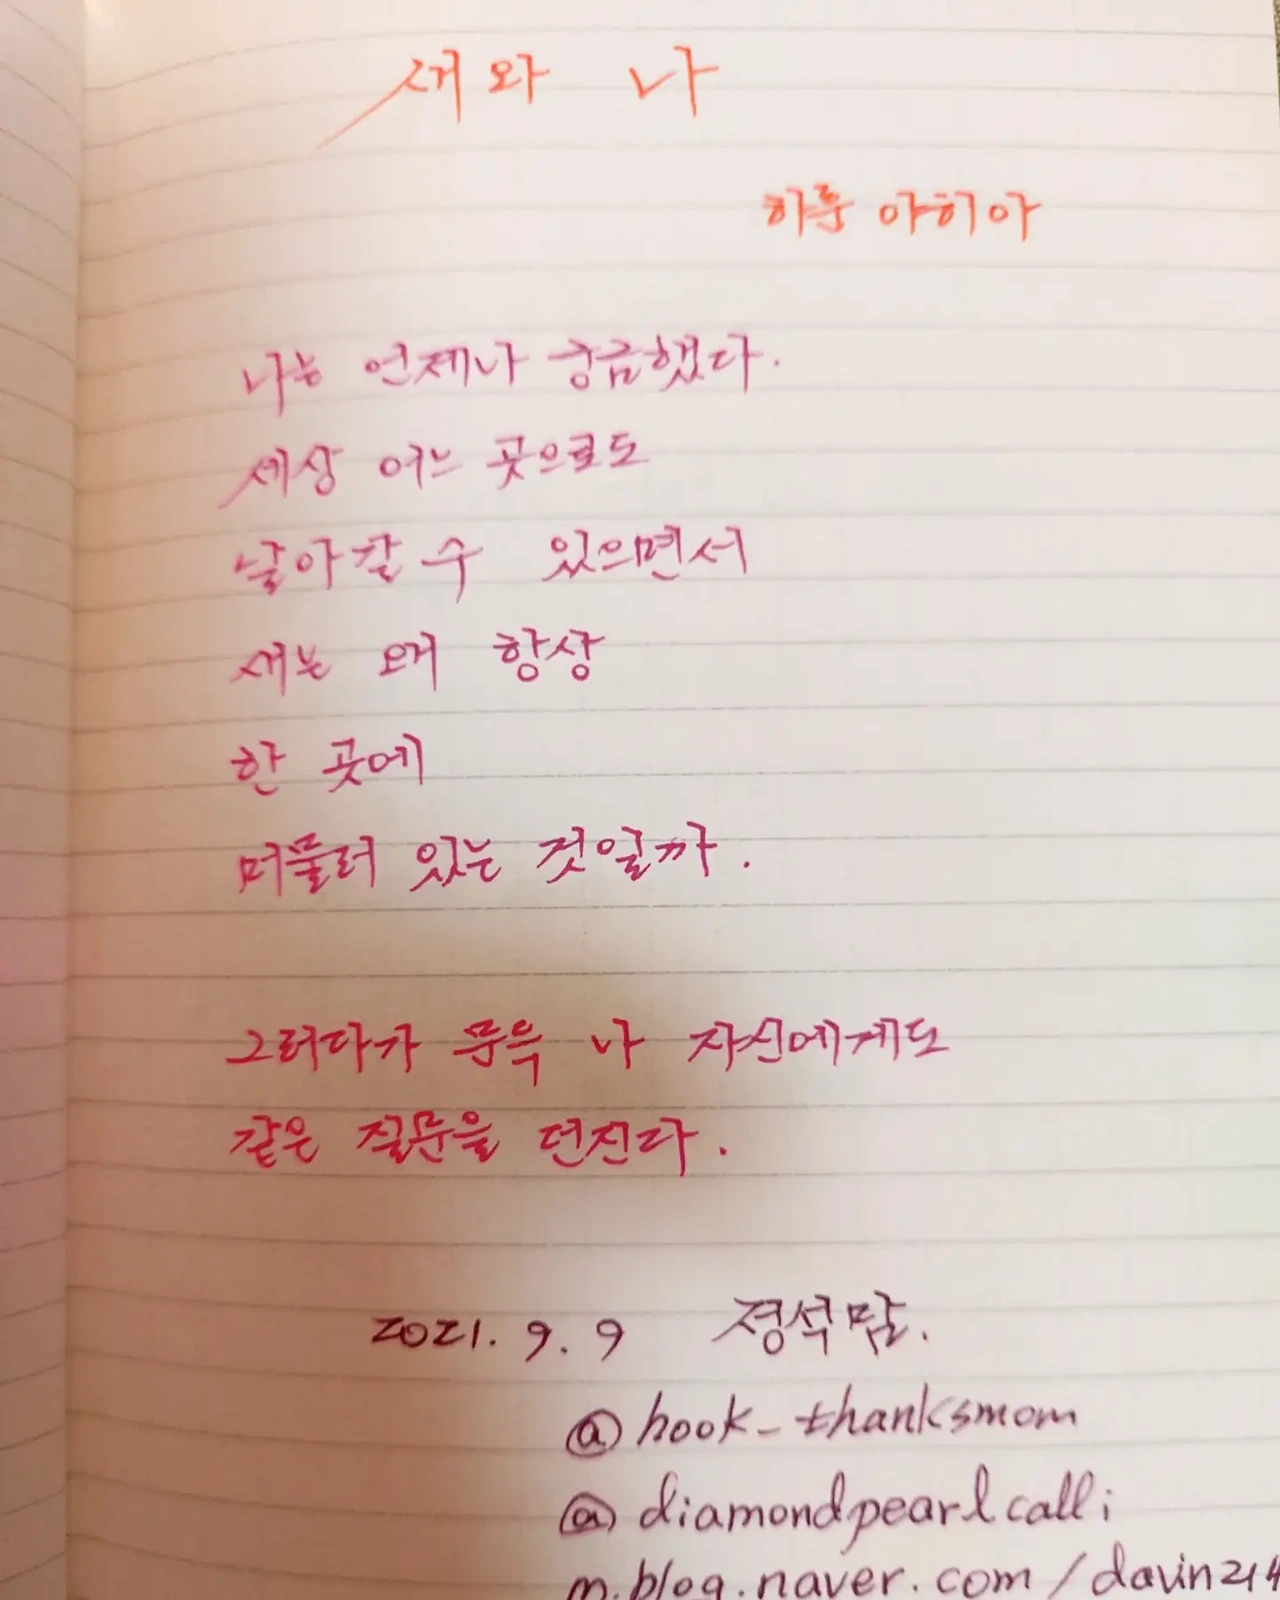 새와 나
하룬 야히아
나는 언제나 궁금했다.
세상 어느 곳으로도
날아갈 수 있으면서
새는 왜 항상
한 곳에
머물러 있는 것일까.
그러다가 문득 나 자신에게도
같은 질문을 던진다.
2021. 9. 9 정석맘.
@book_thanksmom
@diamondpearlcalli
m.blog.naver.com/davin214